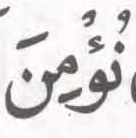 نُؤْمِنَ